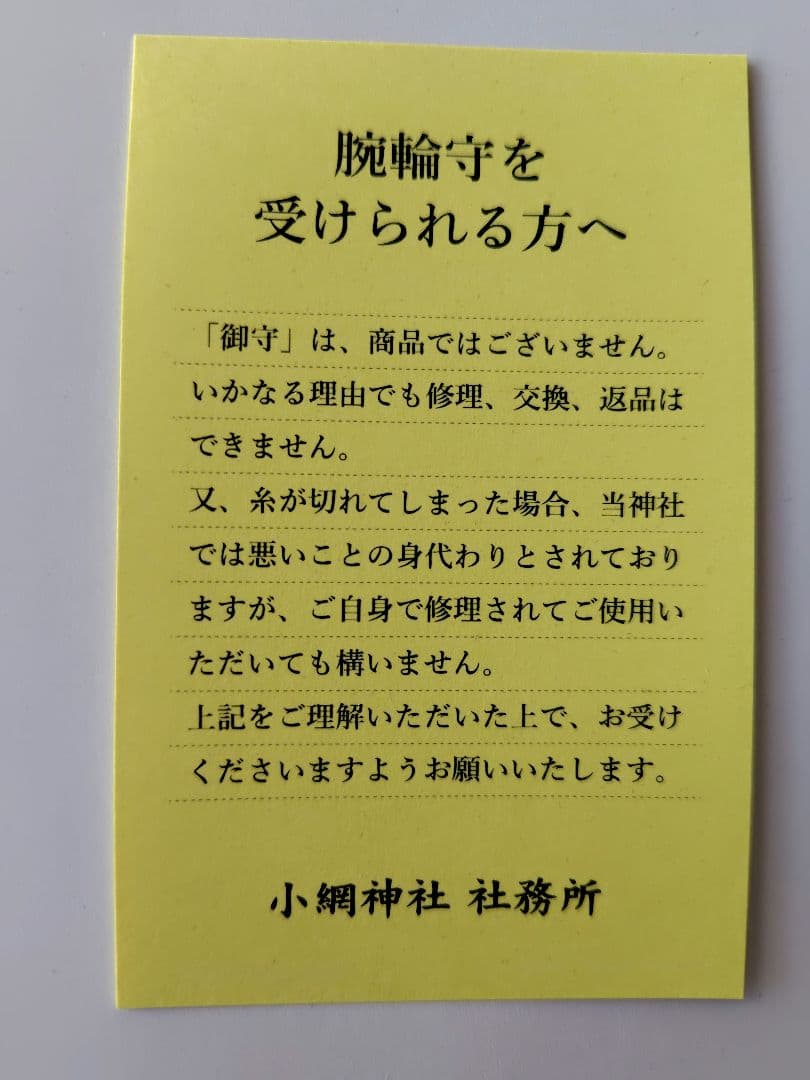 腕輪守を
受けられる方へ
「御守」は、商品ではございません。
いかなる理由でも修理、交換、返品は
できません。
又、糸が切れてしまった場合、当神社
では悪いことの身代わりとされており
ますが、ご自身で修理されてご使用い
ただいても構いません。
上記をご理解いただいた上で、お受け
くださいますようお願いいたします。
小網神社 社務所